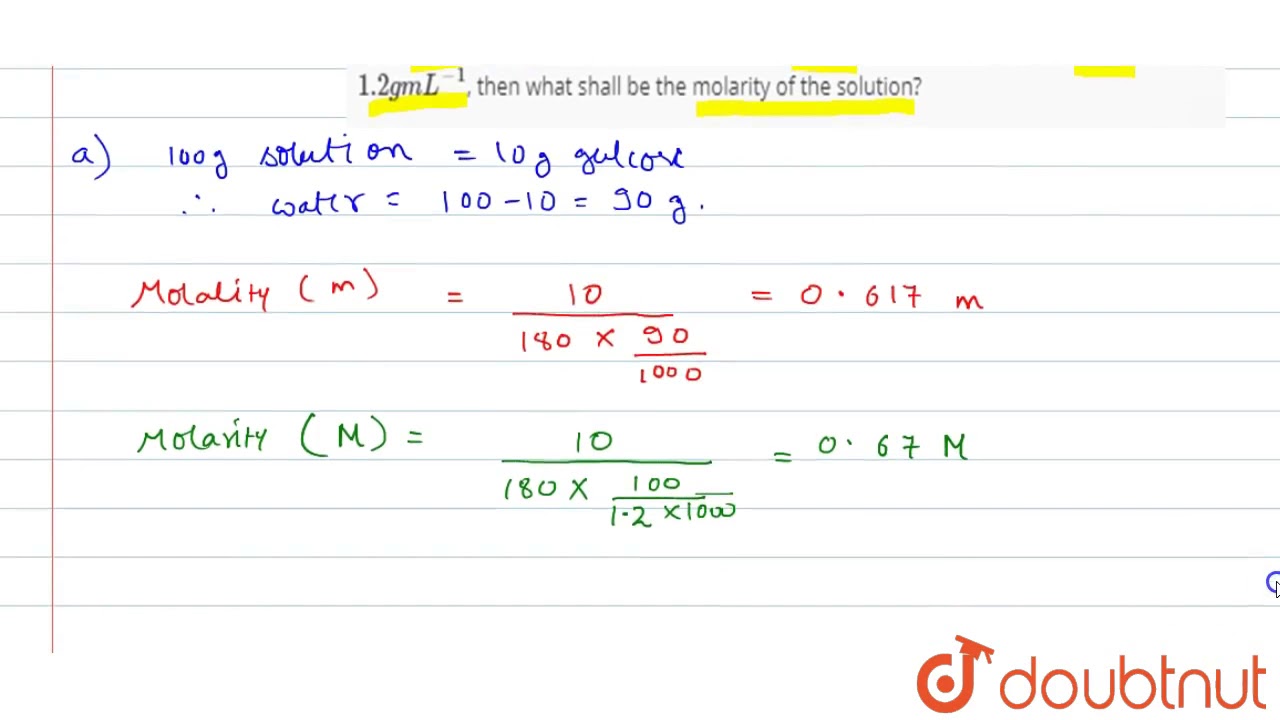 1.2gmL⁻¹, then what shall be the molarity of the solution?
a) 100g solution = 10g gulcose
∴ water = 100 - 10 = 90 g.
Molality (m) = 10 / (180 × 90/1000) = 0.617 m
Molarity (M) = 10 / (180 × 100/(1.2 × 1000)) = 0.67 M
doubtnut